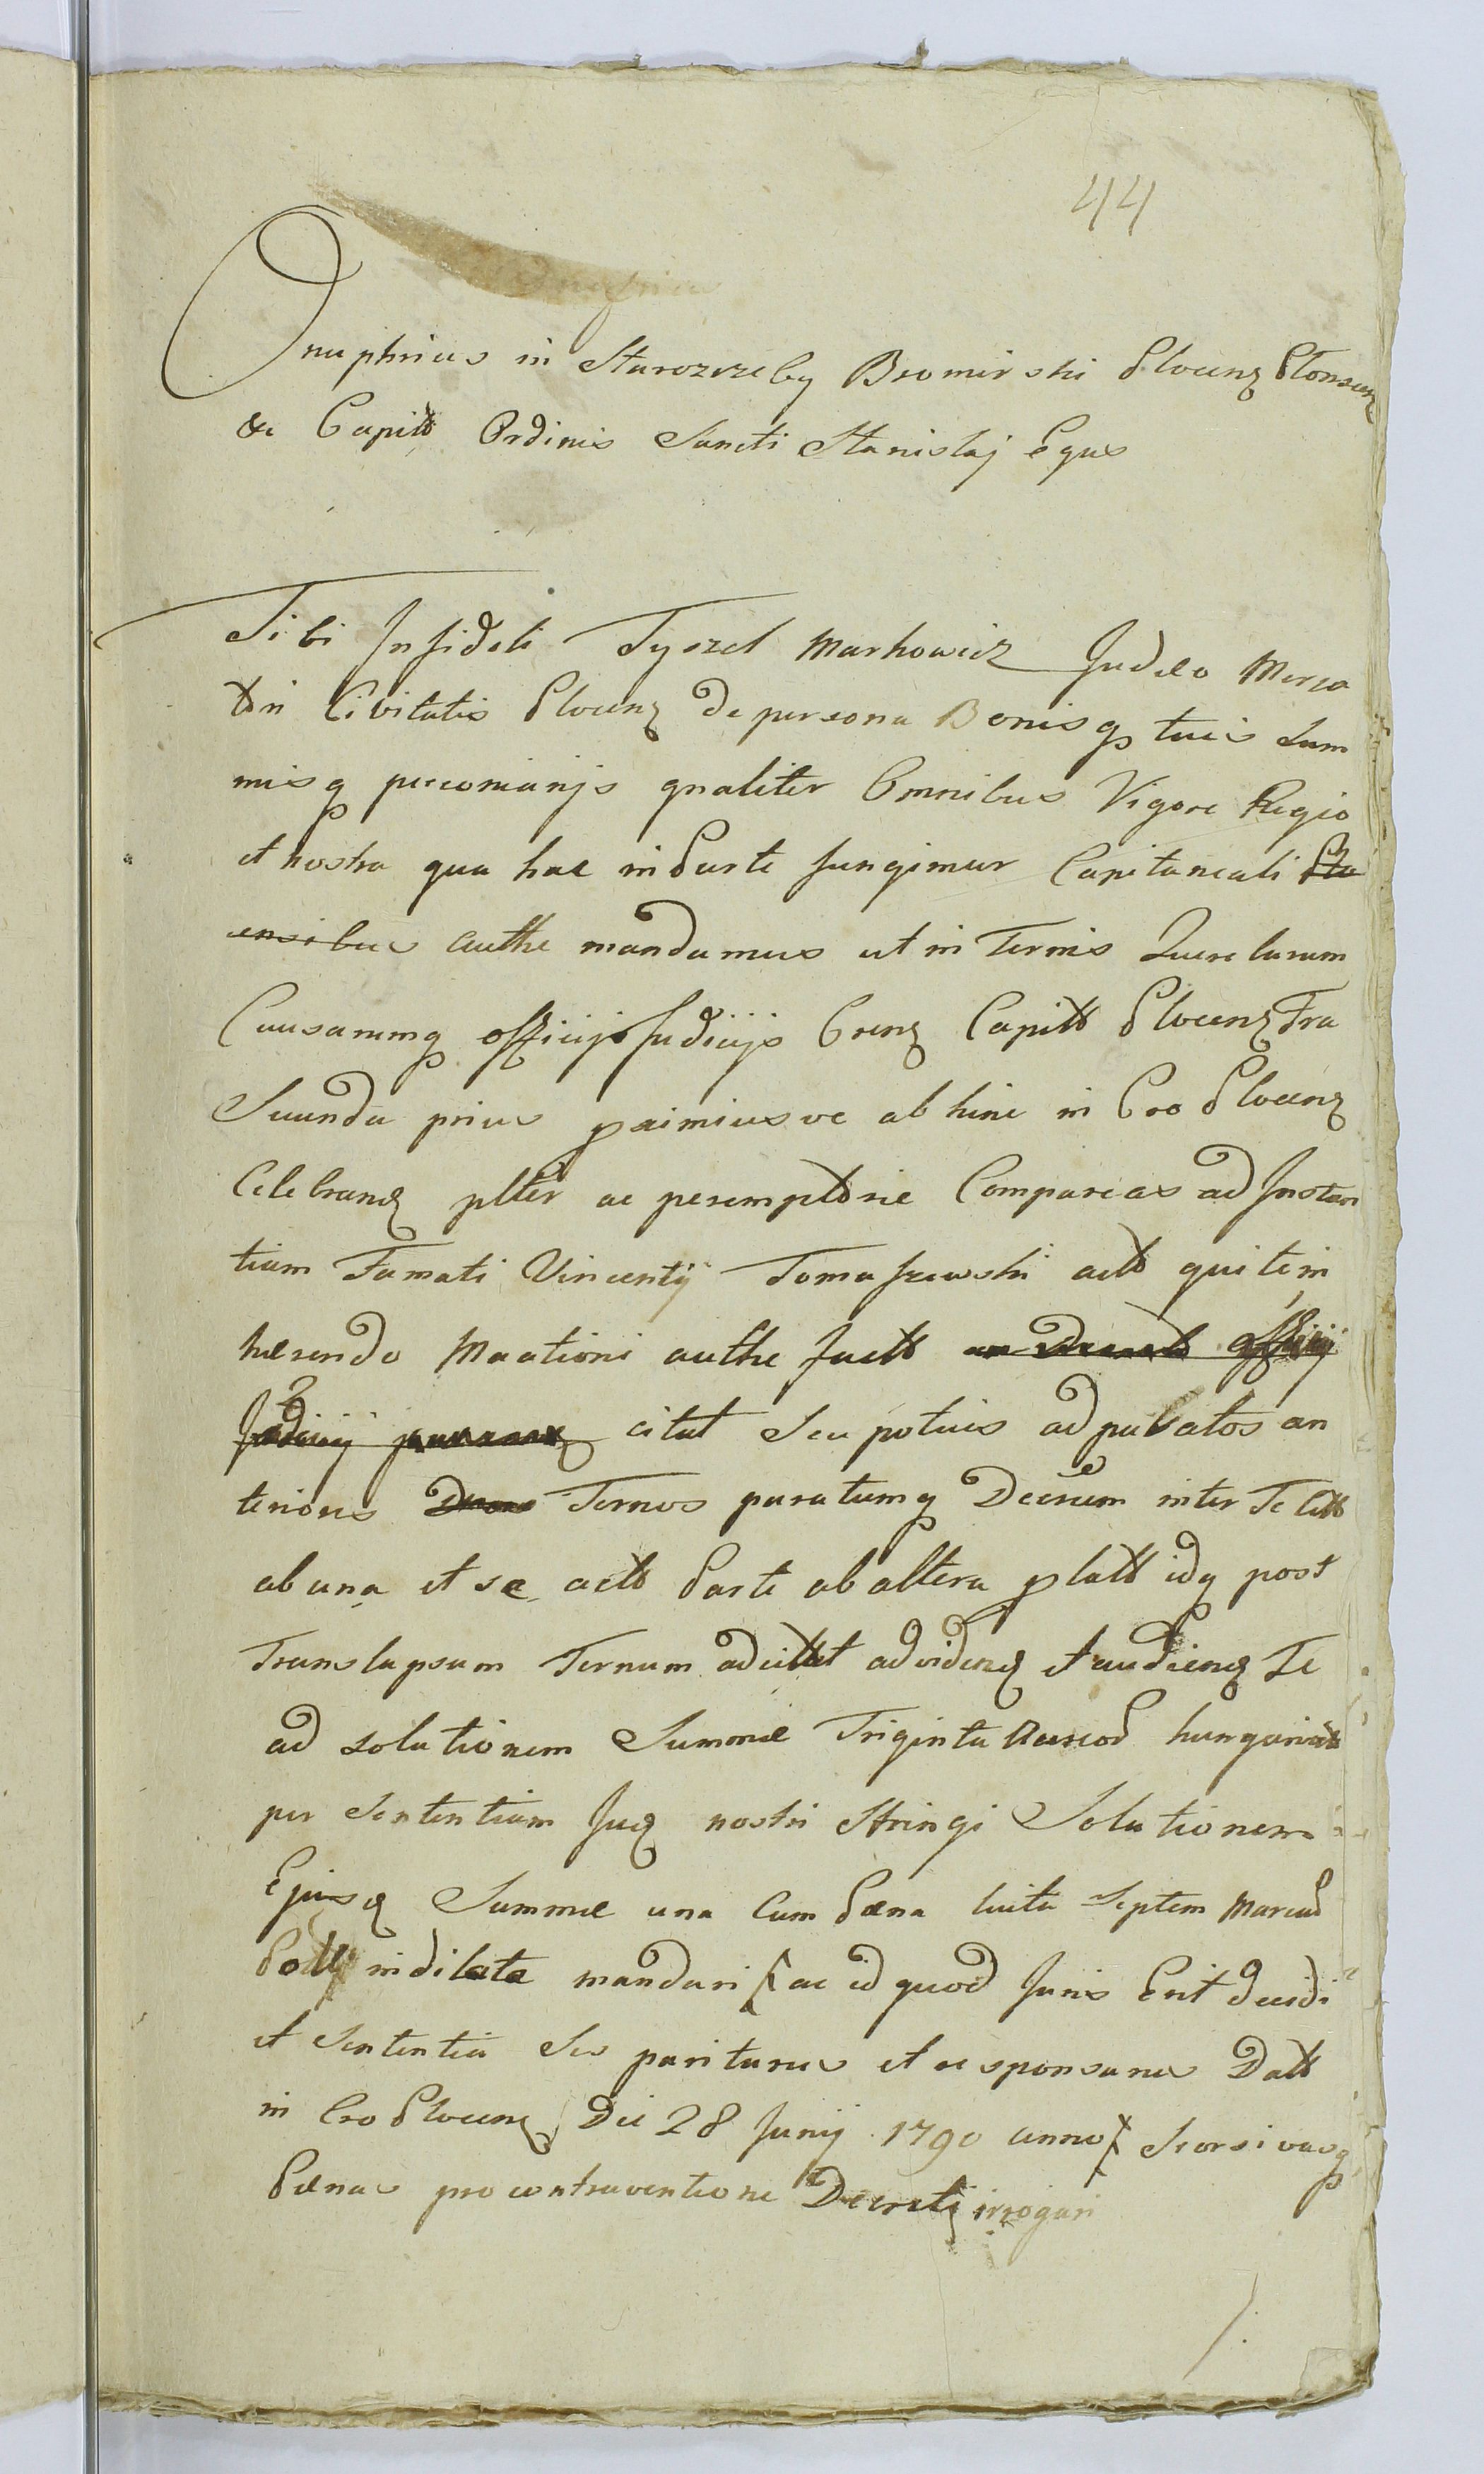 44
Onuphrius in Starozreby Bromirski Plocens Plonscens
& Capits Ordinis Sancti Stanislaj Eques
Tibi Infideli Tyszel Markowicz Judæo Merca
tori Civitatis Plocens de persona Bonisq tuis Sum
misq pecconiarijs qualiter Omnibus Vigore Regio
et nostra qua hac in Parte fungimur Capitaneali Plo
censibus authe mandamus ut in Ternis Querelarum
Causarumq officij Judicijs Crens Capits Plocens Fra
Secunda prius proximiusve abhinc in Cro Plocens
Celebrans plter ac peremptorie Compareas ad Instan
tiam Famati Vincentij Tomaszewski acts qui te in
hærendo Maationi authe facts officij
Judicij citat Seu potius ad pubatos an
teriores Ternos paratumq Decretum inter Te Citts
ab una et se acts Parte ab altera plats idq post
Translapsum Ternum adcittat ad vidend et audiend Te
ad solutionem Summæ Triginta Aureod hungarical
per Sententiam Jud nostri Stringi Solutionem
Ejusd Summæ una Cum Pæna luita Septem Marcard
indilate mandari ac id quod Juris Erit decidi
et Sententia Sis pariturus et responsurus Datt
in Cro Plocens Die 28 Junij 1790 anno Seorsivasq
Pænas pro contraventione Decreti irrogari